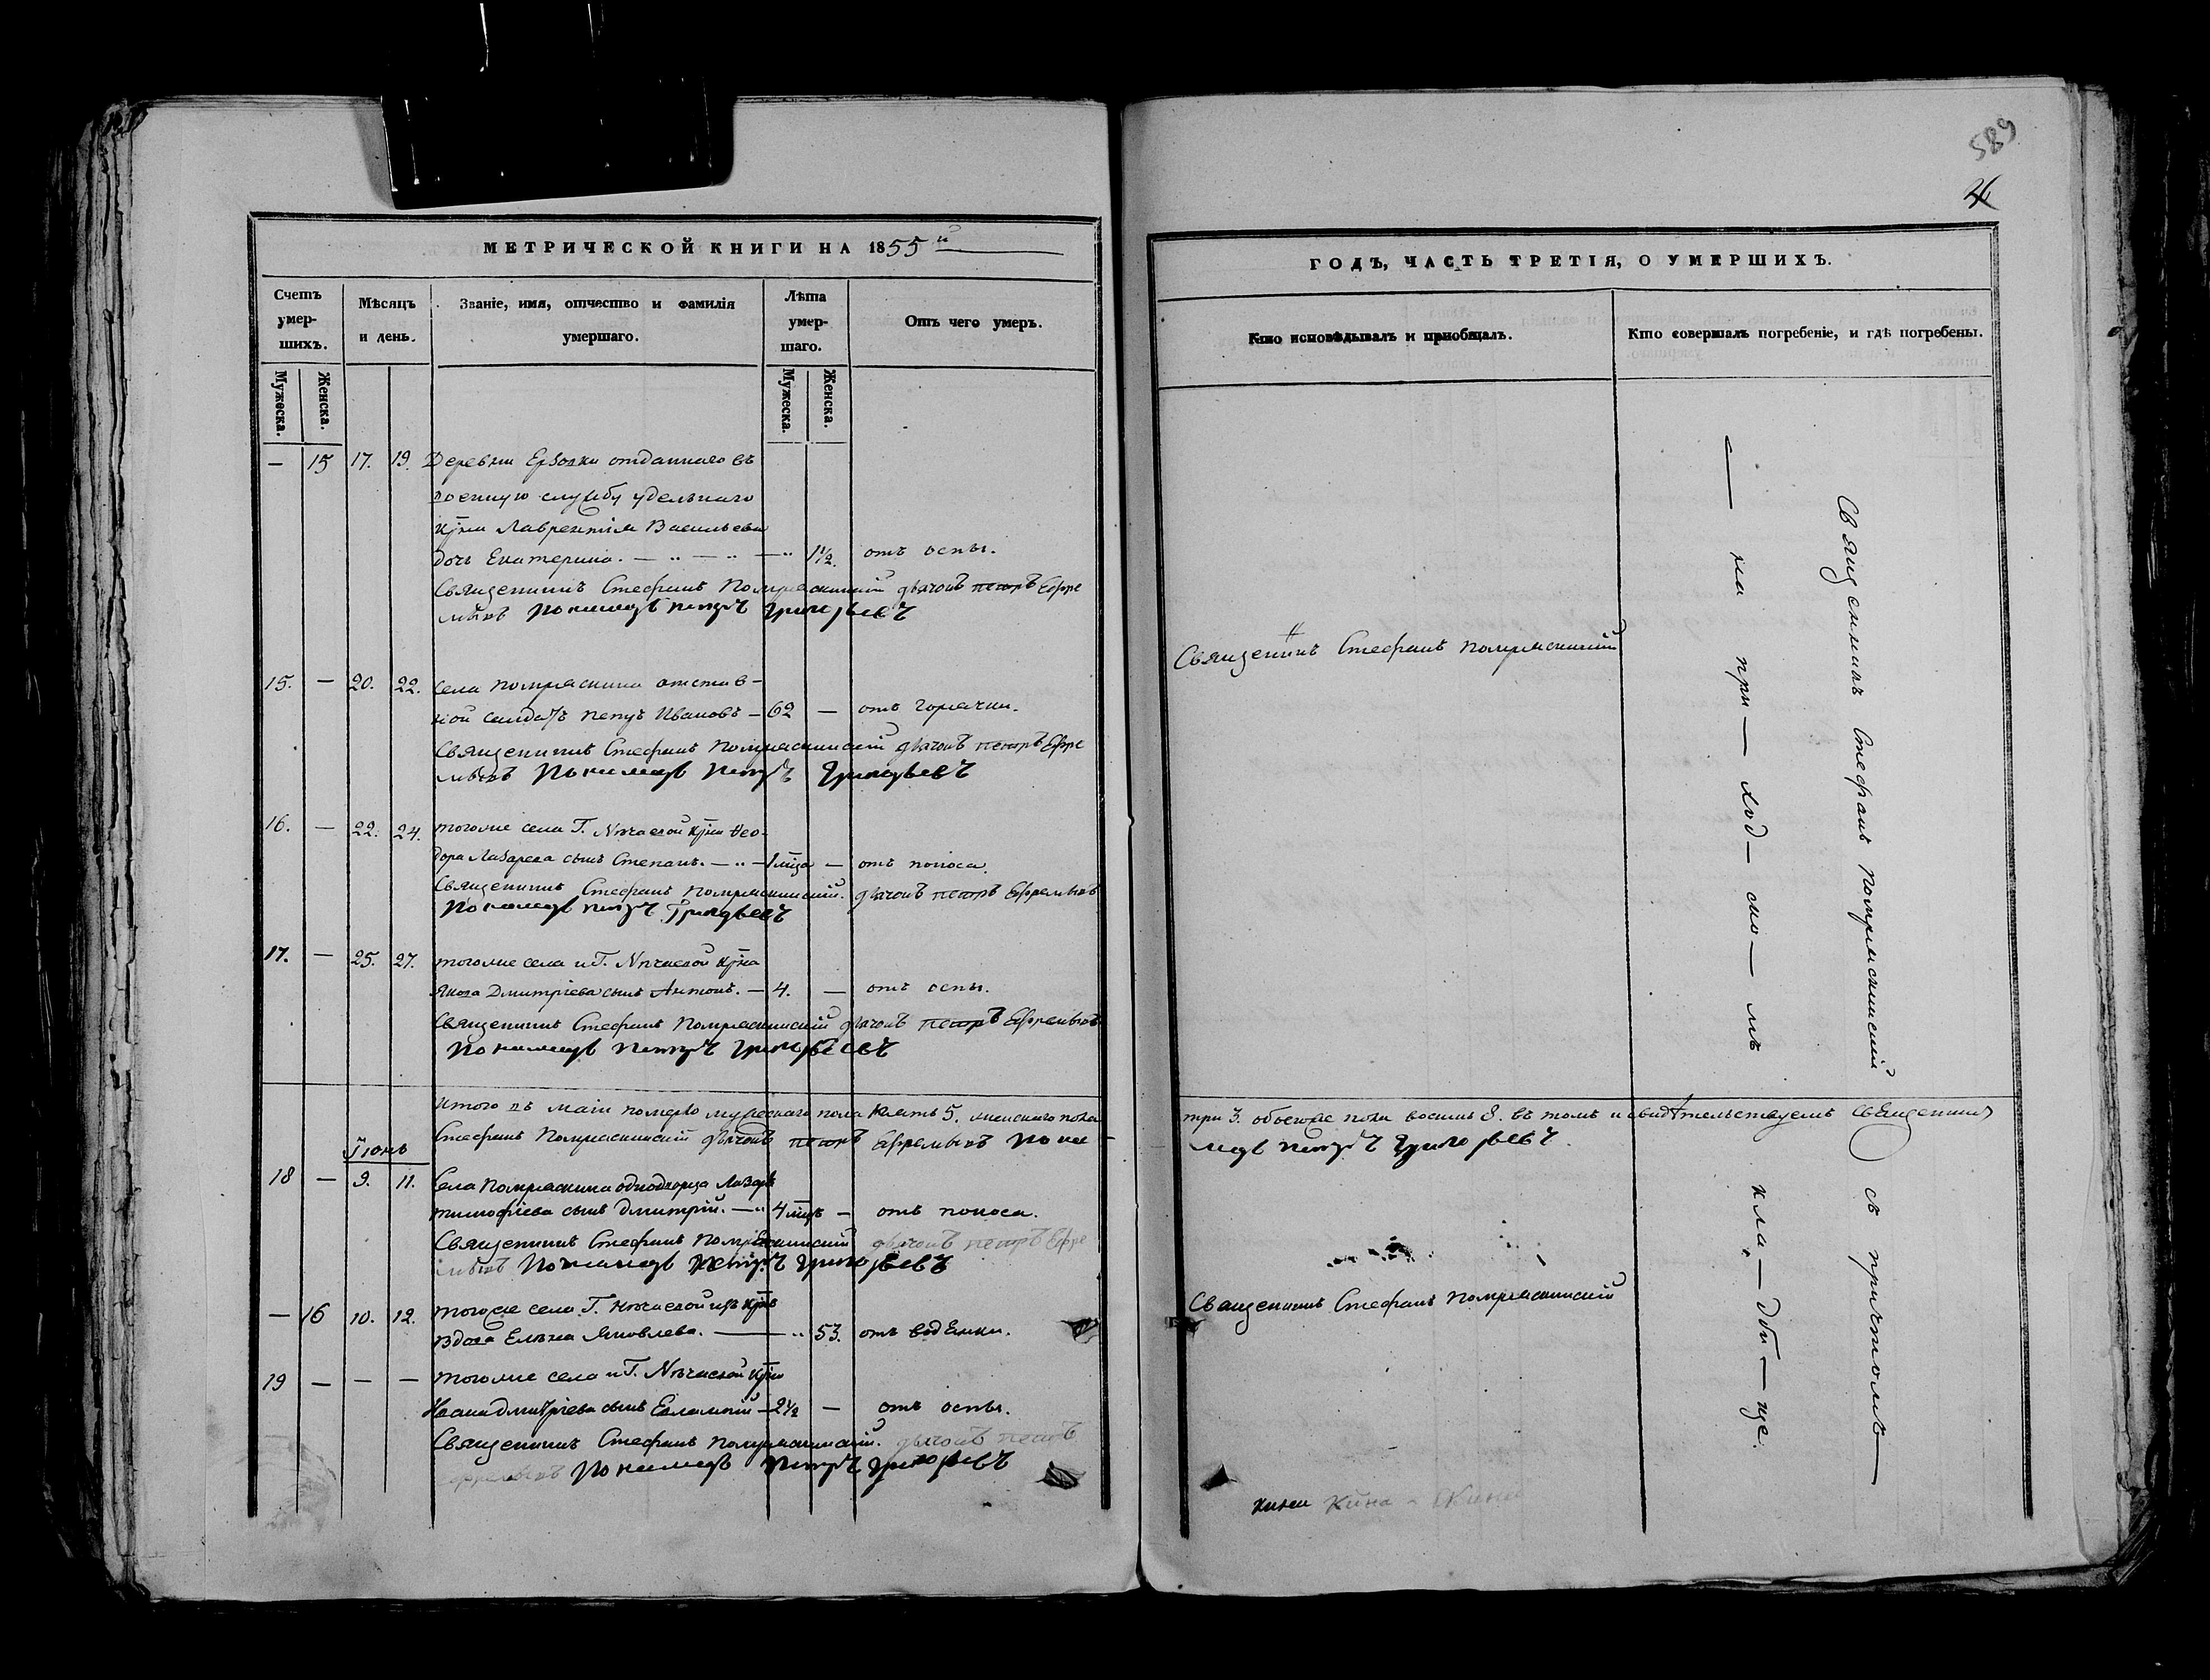 589
26
МЕТРИЧЕСКОЙ КНИГИ НА 1855й
Счетъ умер-шихъ.
Мѣсяцъ и день.
Званіе, имя, отчество и фамилія умершаго.
Лѣта умер-шаго.
Отъ чего умеръ.
Мужеска.
Женска.
Мужеска.
Женска.
— 15 17. 19. Деревни отданнаго въ
военную службу удельнаго
Лаврентія Васильева
дочь Екатерина. — 1½. отъ оспы.
Священникъ Стефанъ Помряскинскій дьячокъ петръ Ефре
мычъ Пономарь петръ Григорьевъ
15. — 20. 22. Села помряскина отстав-
ной солдатъ петръ Ивановъ — 62 — отъ горячки.
Священникъ Стефанъ Помряскинскій дьячокъ петръ Ефре
мычъ Пономарь Петръ Григорьевъ
16. — 22. 24. тогоже села Г. Нечаевой Ѳео-
дора Лазарева сынъ Степанъ. — 1 мца — отъ поноса.
Священникъ Стефанъ Помряскинскій. дьячокъ петръ Ефремычъ
Пономарь петръ Григорьевъ
17. — 25. 27. тогоже села и Г. Нечаевой
Якова Дмитріева сынъ Антонъ. — 4. — отъ оспы.
Священникъ Стефанъ Помряскинскій дьячокъ петръ Ефремычъ
Пономарь Петръ Григорьевъ
Итого въ маіи померло мужескаго пола пять 5. женскаго пола
Стефанъ Помряскинскій дьячокъ петръ Ефремычъ Поно-
Іюнь
18 — 9. 11. Села Помряскина однодворца Лазаря
тимофіева сынъ Дмитрій. — 4 мцъ — отъ поноса.
Священникъ Стефанъ Помряскинскій дьячокъ петръ Ефре
мычъ Пономарь петръ Григорьевъ
— 16 10. 12. тогоже села Г. Нечаевой
вдова Елена Яковлева. — 53. отъ водянки.
19 — — — тогоже села и Г. Нечаевой
Ивана Дмитріева сынъ Евлампій — 2½ — отъ оспы.
Священникъ Стефанъ Помряскинскій. дьячокъ петръ
Ефремычъ Пономарь Петръ Григорьевъ
ГОДЪ, ЧАСТЬ ТРЕТІЯ, О УМЕРШИХЪ.
Кто исповѣдывалъ и пріобщалъ.
Кто совершалъ погребеніе, и гдѣ погребены.
Священникъ Стефанъ Помряскинскій
три 3. обоего пола восемь 8. въ томъ и свидѣтельствуемъ Священникъ
марь петръ Григорьевъ.
Священникъ Стефанъ Помряскинскій
Священникъ Стефанъ Помряскинскій съ причтомъ —
— на при — ход — ско — мъ кла — дби — ще.